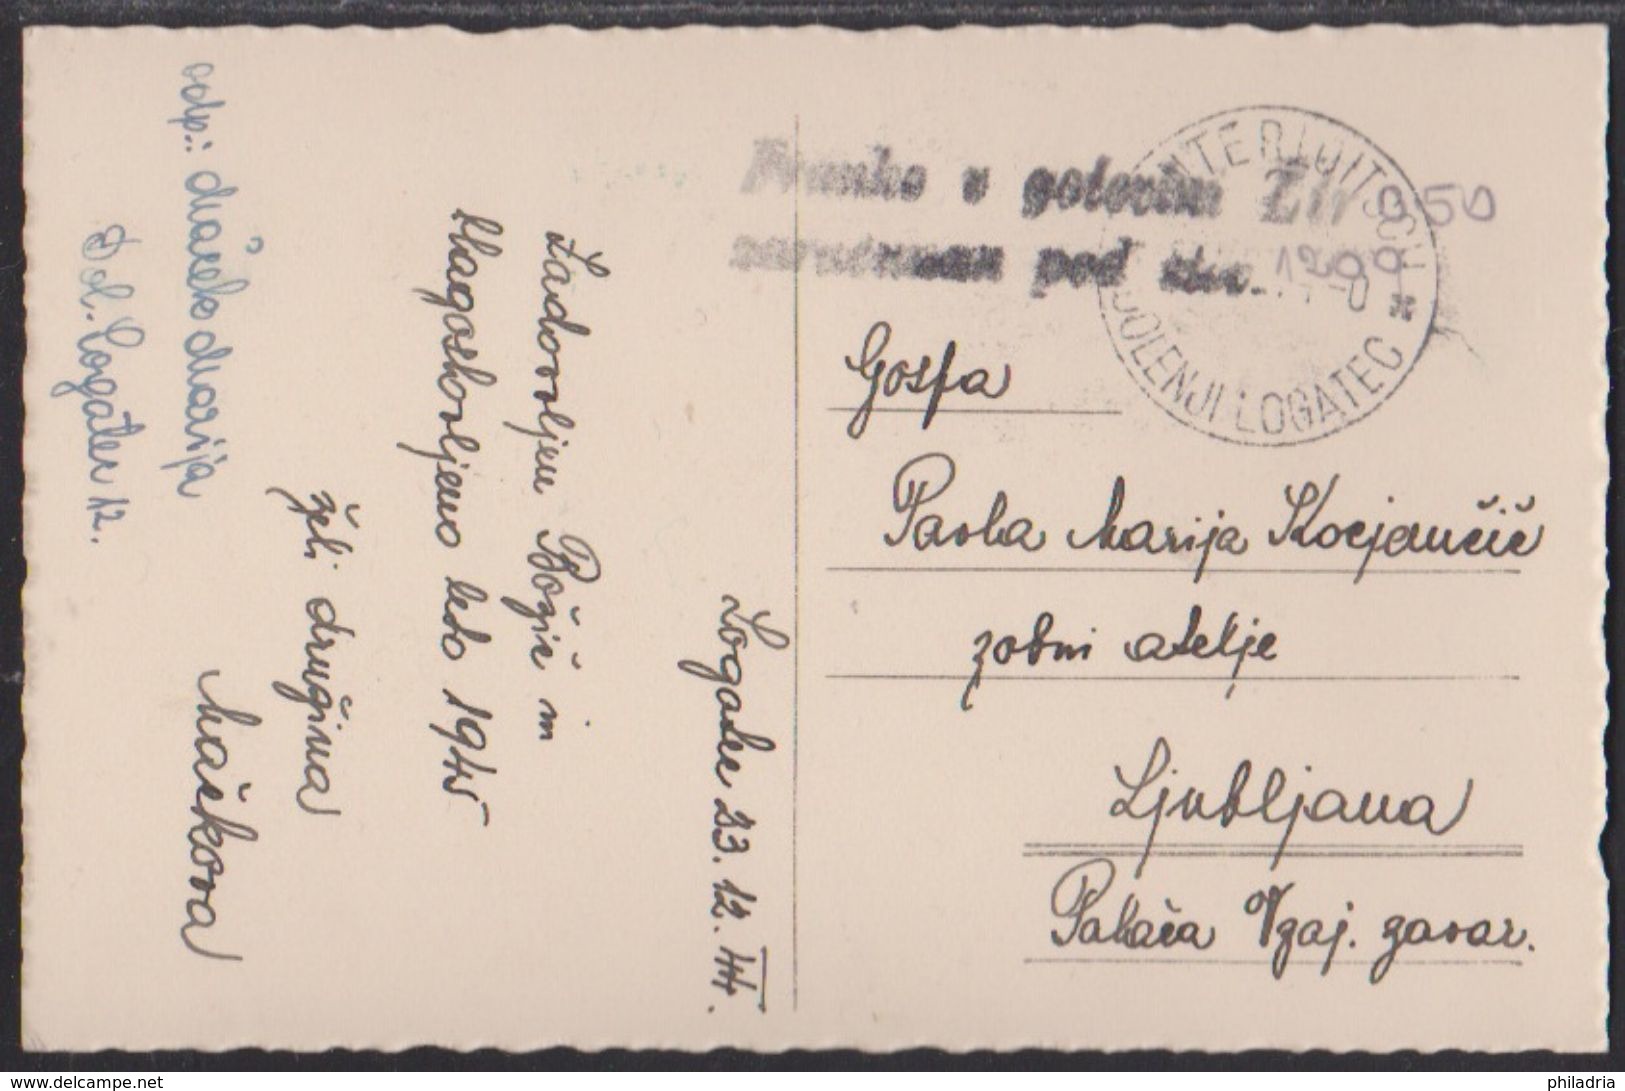 odp.: Maček Marija
Dol. Logatec 12.
Logatec 23. 12. 44.
Zadovoljen Božič in
blagoslovljeno leto 1945
želi družina
Mačkova
Franko v gotovini Lir 0.50
pod štev. 1200
UNTERLOITSCH
DOLENJI LOGATEC *
Gospa
Pavla Marija Kocjančič
zobni atelje
Ljubljana
Palača Vzaj. zavar.
www.delcampe.net
philadria